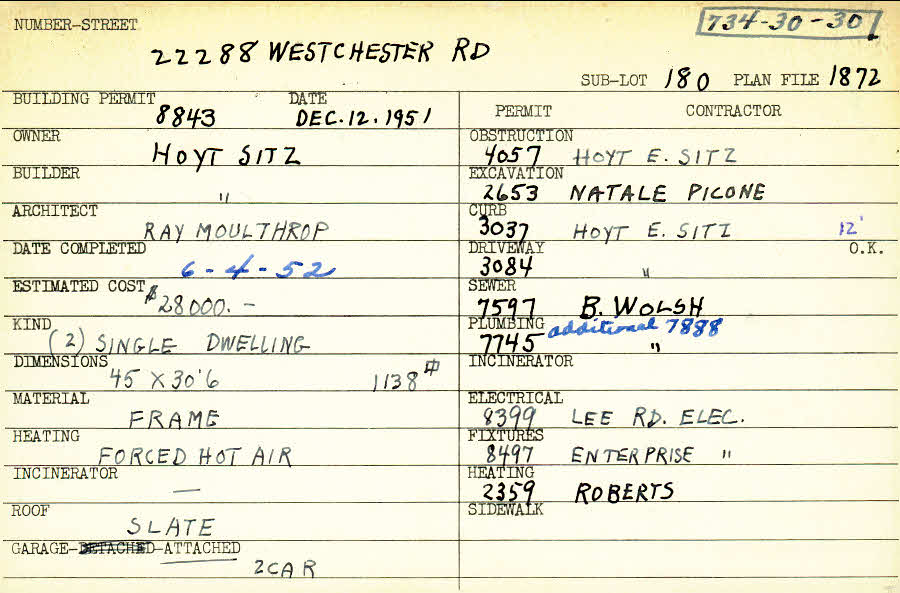 NUMBER-STREET
734-30-30
22288 WESTCHESTER RD
SUB-LOT 180 PLAN FILE 1872
BUILDING PERMIT DATE
8843 DEC. 12. 1951
OWNER
HOYT SITZ
BUILDER
"
ARCHITECT
RAY MOULTHROP
DATE COMPLETED
6-4-52
ESTIMATED COST
$28000.—
KIND
(2) SINGLE DWELLING
DIMENSIONS
45 X 30'6 1138
MATERIAL
FRAME
HEATING
FORCED HOT AIR
INCINERATOR
—
ROOF
SLATE
GARAGE-DETACHED-ATTACHED
2 CAR
PERMIT CONTRACTOR
OBSTRUCTION
4057 HOYT E. SITZ
EXCAVATION
2653 NATALE PICONE
CURB
3037 HOYT E. SITZ 12'
DRIVEWAY O.K.
3084 "
SEWER
7597 B. WOLSH
PLUMBING additional 7888
7745 "
INCINERATOR
ELECTRICAL
8399 LEE RD. ELEC.
FIXTURES
8497 ENTERPRISE "
HEATING
2359 ROBERTS
SIDEWALK